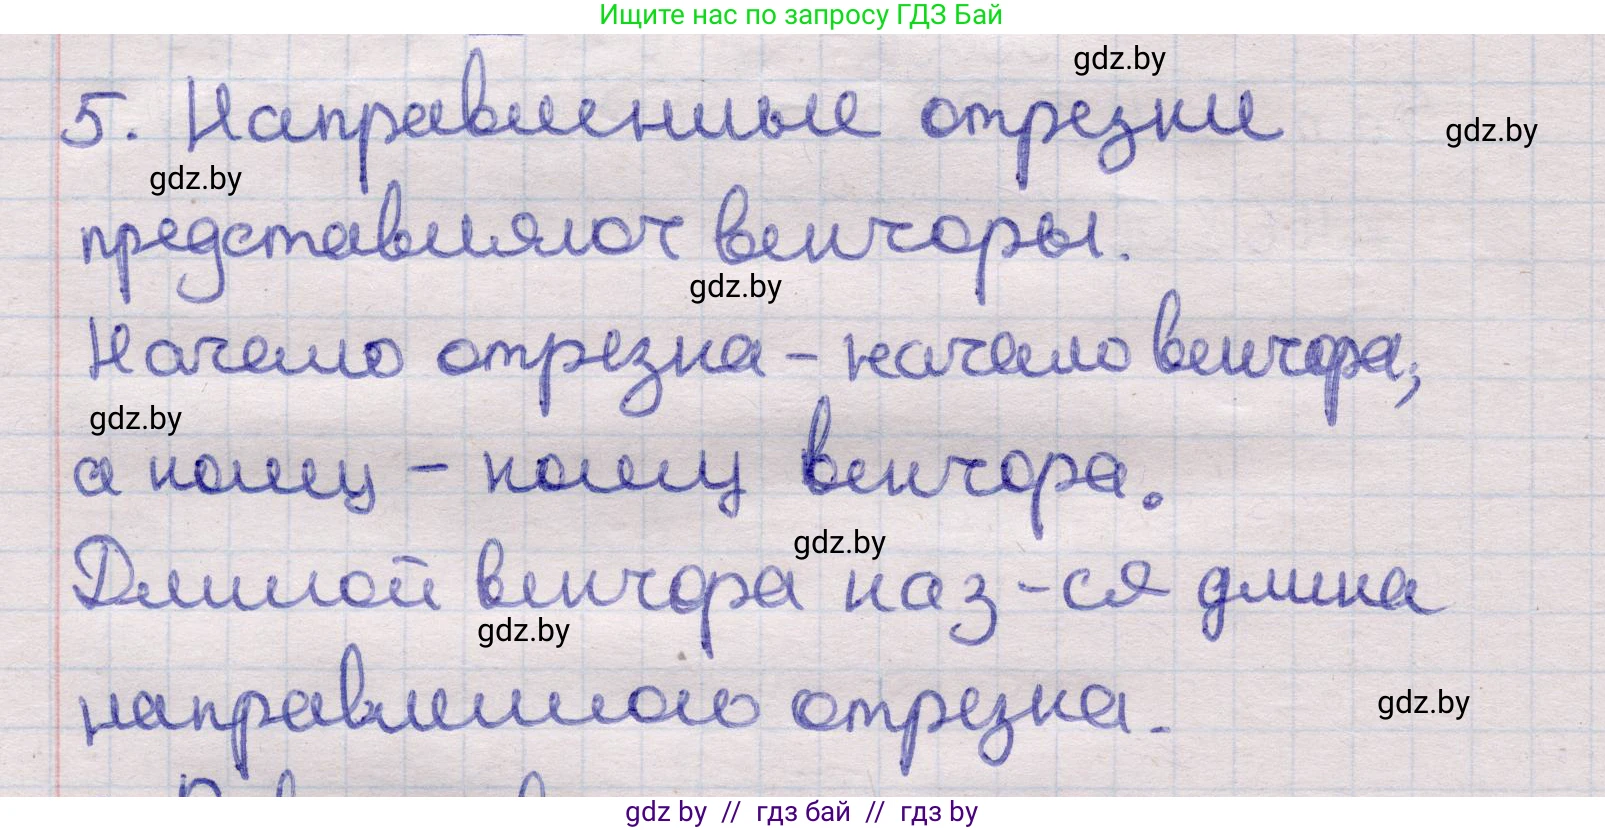 Ищите нас по запросу ГДЗ Бай
gdz.by
5. Направленные отрезки
gdz.by
gdz.by
представляют векторы.
gdz.by
Начало отрезка - начало вектора,
gdz.by
а конец - конец вектора.
gdz.by
Длиной вектора наз-ся длина
gdz.by
направленного отрезка.
gdz.by
gdz by // гдз бай // гдз by